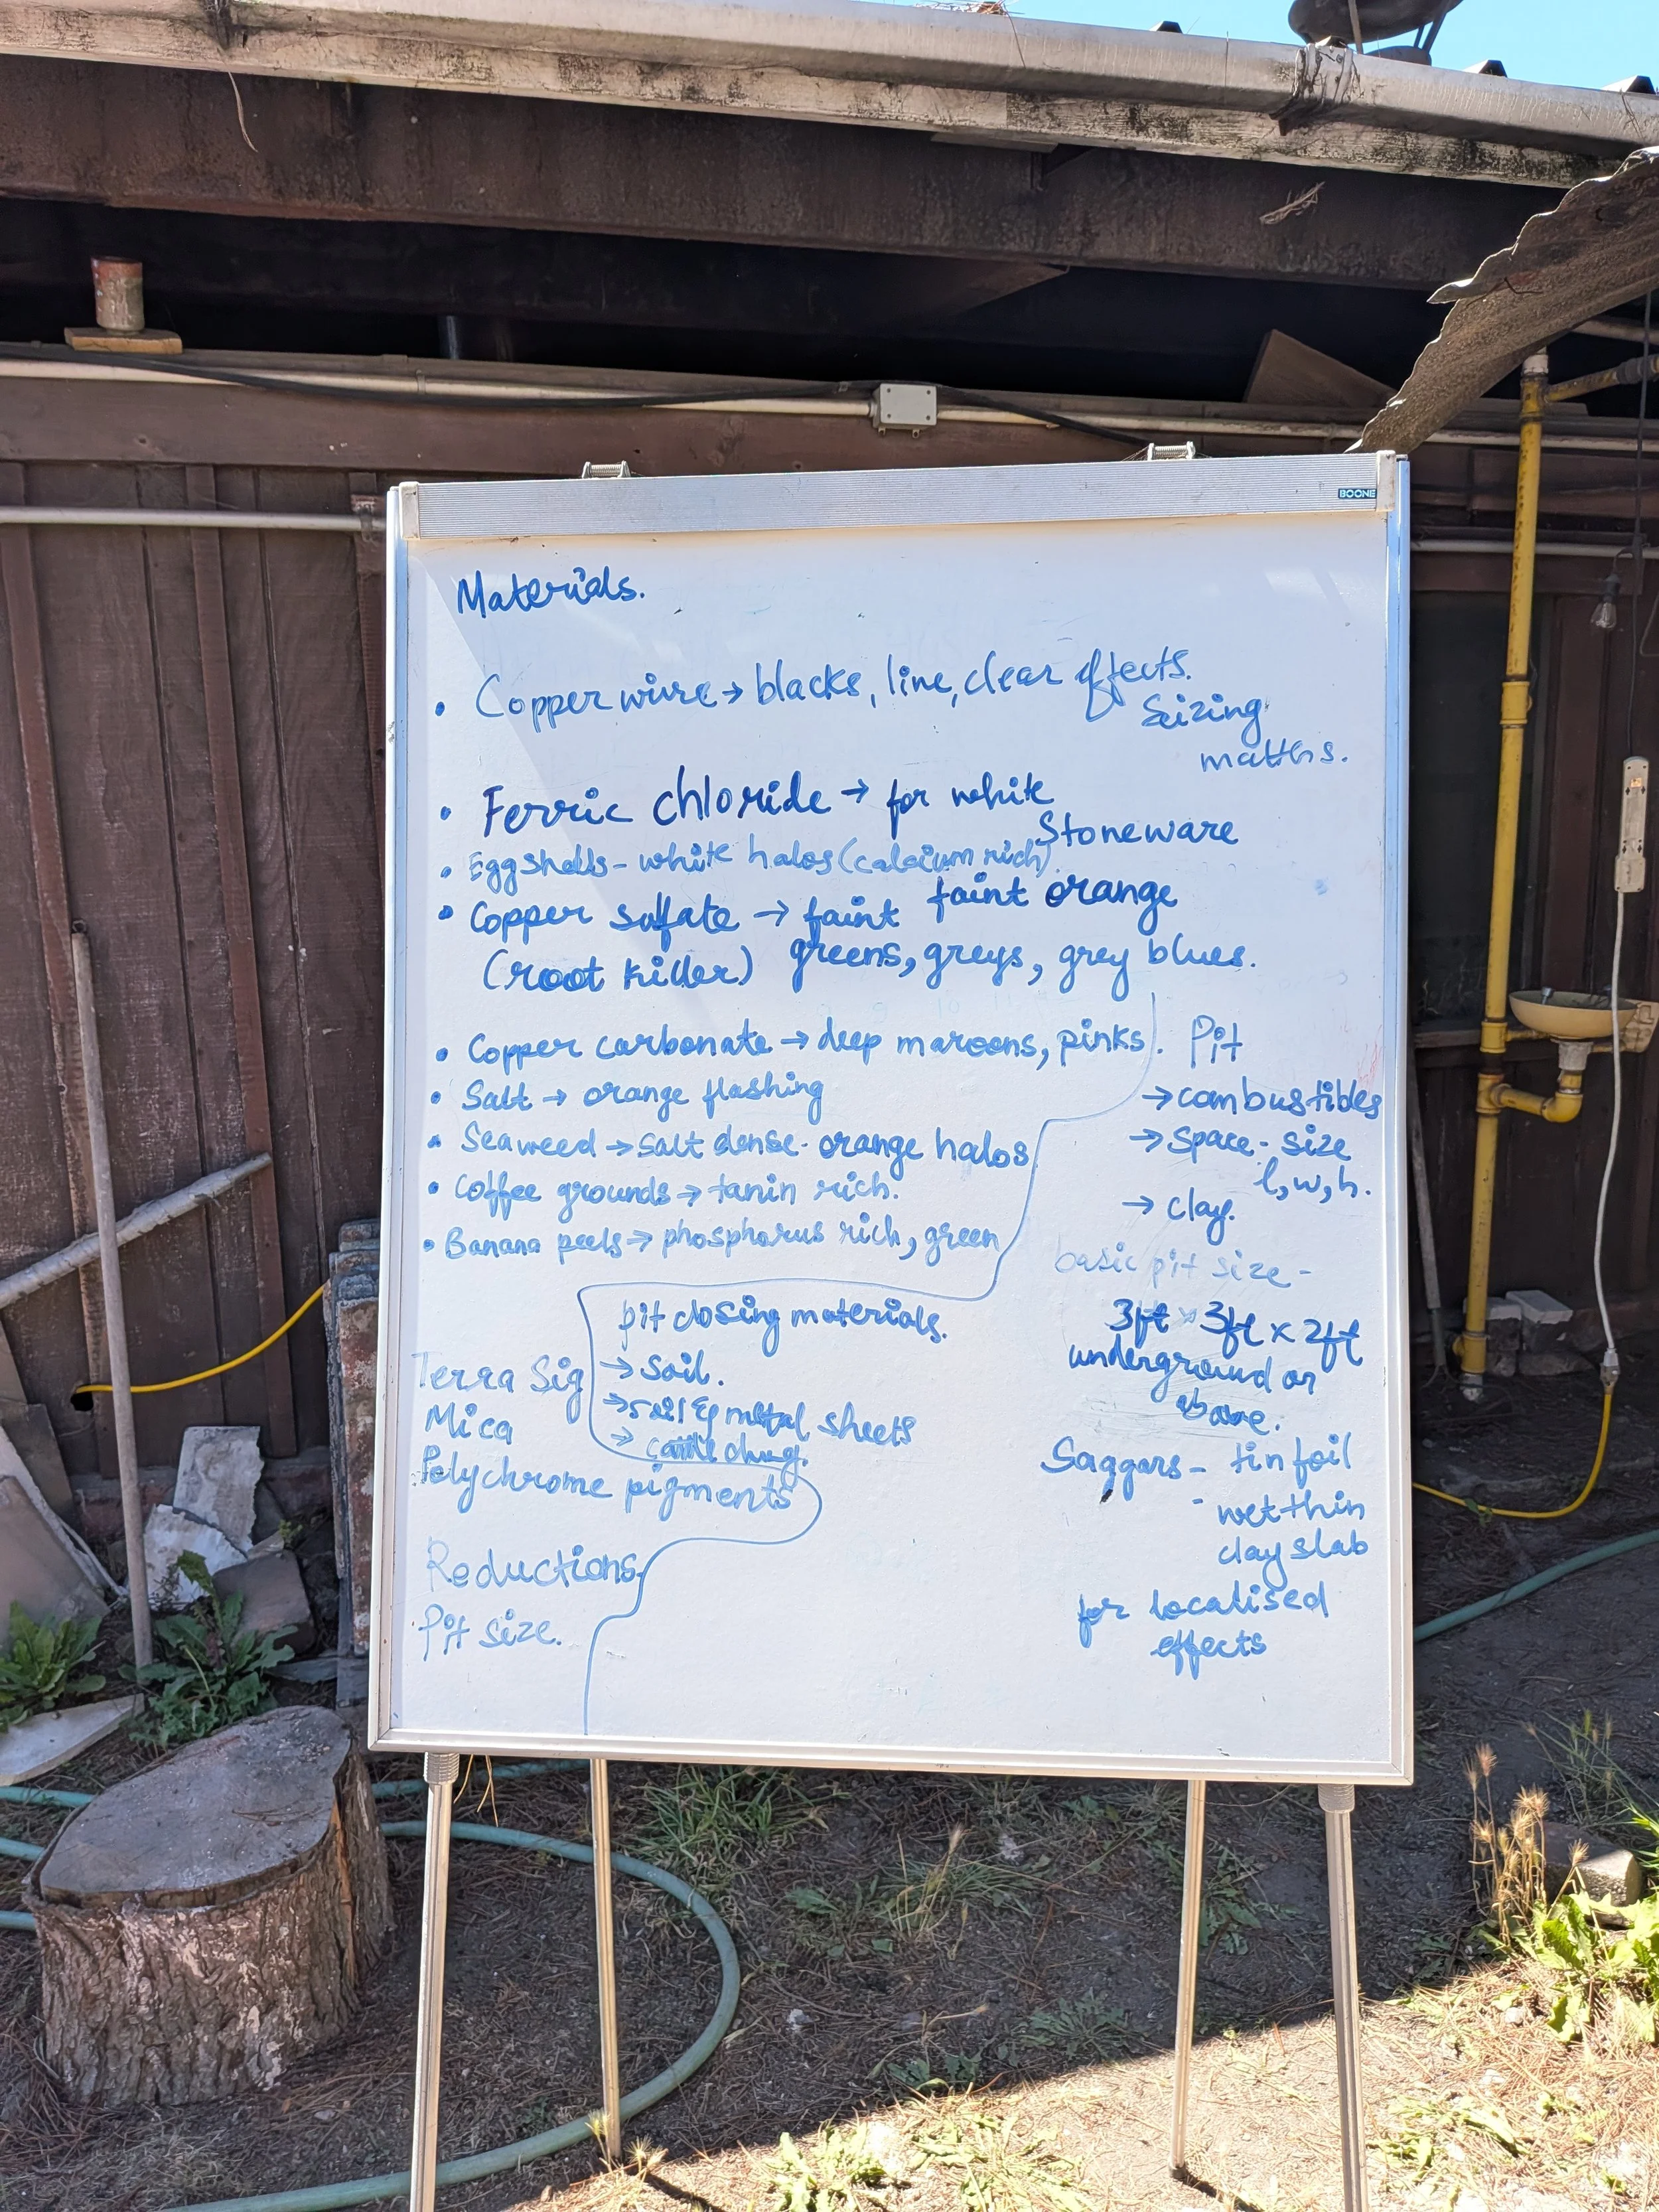 BOONE
Materials.
• Copper wire → blacks, line, clear effects.
Seizing
matths.
• Ferric chloride → for white
Stoneware
• Eggshells - white halos (calcium rich)
faint orange
• Copper sulfate → faint
(root killer) greens, greys, grey blues.
• Copper carbonate → deep maroons, pinks.
• Salt → orange flashing
• Seaweed → salt dense - orange halos
• Coffee grounds → tanin rich.
• Banana peels → phosphorus rich, green
pit closing materials.
→ Soil.
→ soil & metal sheets
→ cattle dung.
Terra Sig
Mica
Polychrome pigments
Reductions.
Pit size.
Pit
→ combustibles
→ space - size
l, w, h.
→ clay.
basic pit size -
3ft x 3ft x 2ft
underground or
above.
Saggars - tin foil
- wet thin
clay slab
for localised
effects